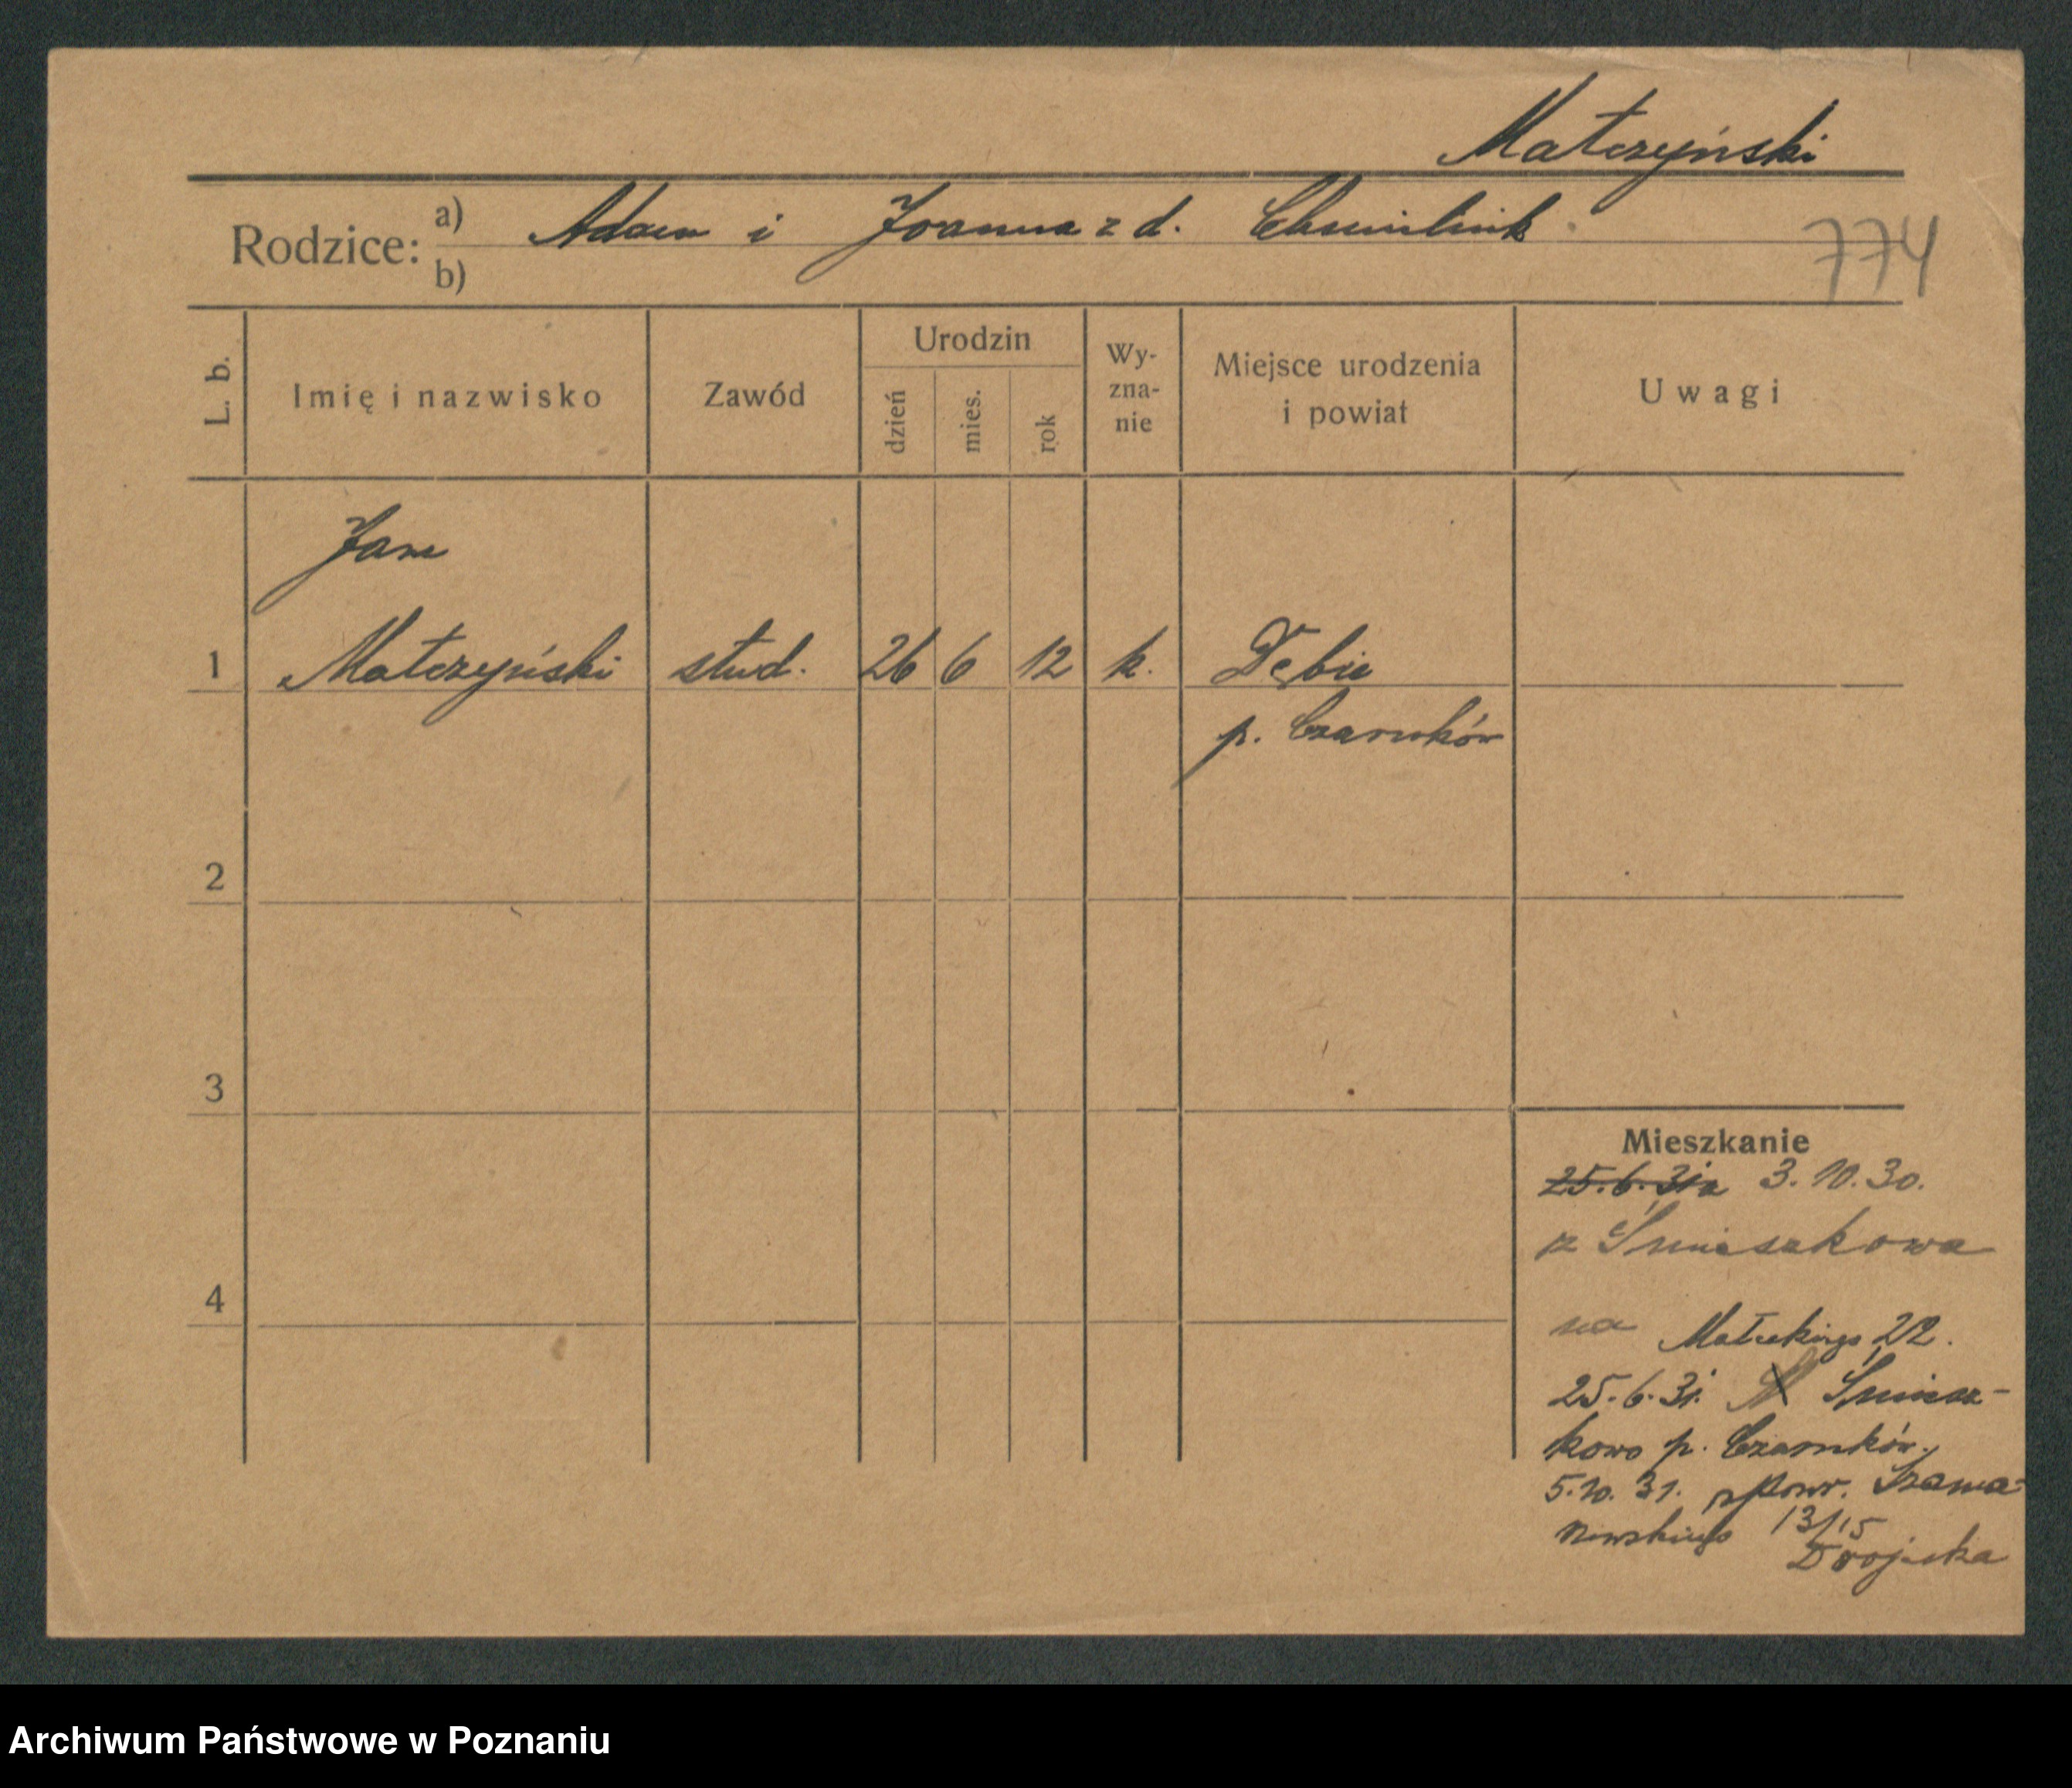 Matczyński
Rodzice: a) Adam i Joanna z d. Chmielnik
b)
774
L. b. Imię i nazwisko Zawód Urodzin dzień mies. rok Wy-zna-nie Miejsce urodzenia i powiat Uwagi
Jan
1 Matczyński stud. 26 6 12 k. Dębie
p. Czarnków
2
3
4
Mieszkanie
25.6.31 3.10.30.
z Śmieszkowa
na Małeckiego 22.
25.6.31. Śmiesz-
kowo p. Czarnków.
5.10.31. powr. Szama-
rzewskiego 13/15
Archiwum Państwowe w Poznaniu